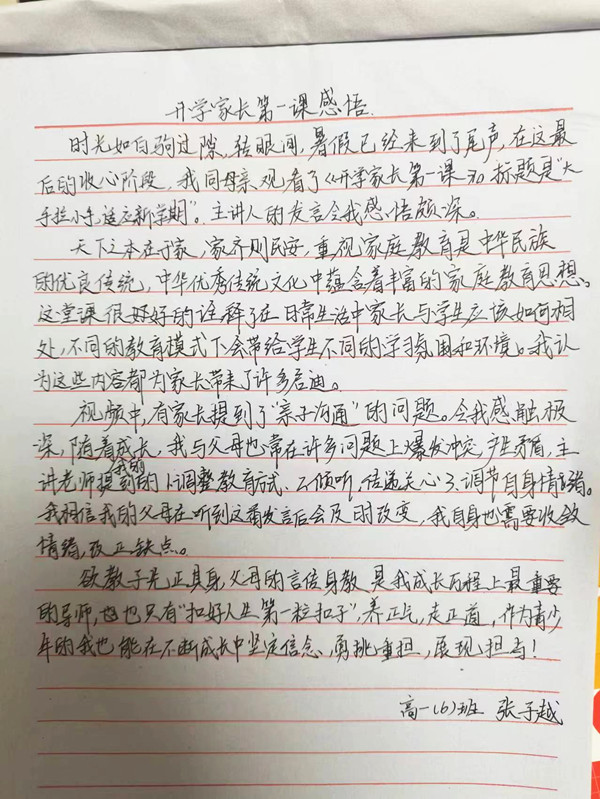 开学家长第一课感悟.
时光如白驹过隙,转眼间,暑假已经来到了尾声,在这最
后的收心阶段,我同母亲观看了《开学家长第一课》标题是"大
手拉小手,适应新学期"。主讲人的发言令我感悟颇深。
天下之本在于家,家齐则民安,重视家庭教育是中华民族
的优良传统,中华优秀传统文化中蕴含着丰富的家庭教育思想。
这堂课很好好的诠释了在日常生活中家长与学生应该如何相
处,不同的教育模式下会带给学生不同的学习氛围和环境。我认
为这些内容都为家长带来了许多启迪。
视频中,有家长提到了"亲子沟通"的问题。令我感触极
深,随着成长,我与父母也常在许多问题上爆发冲突,产生矛盾,主
讲老师提到的1.调整教育方式 2.倾听,传递关心 3.调节自身情绪。
我相信我的父母在听到这番发言后会及时改变,我自身也需要收敛
情绪,改正缺点。
欲教子先正其身,父母的言传身教是我成长历程上最重要
的导师,也只有"扣好人生第一粒扣子",养正气,走正道,作为青少
年的我也能在不断成长中坚定信念,勇挑重担,展现担当!
高一(6)班 张子越